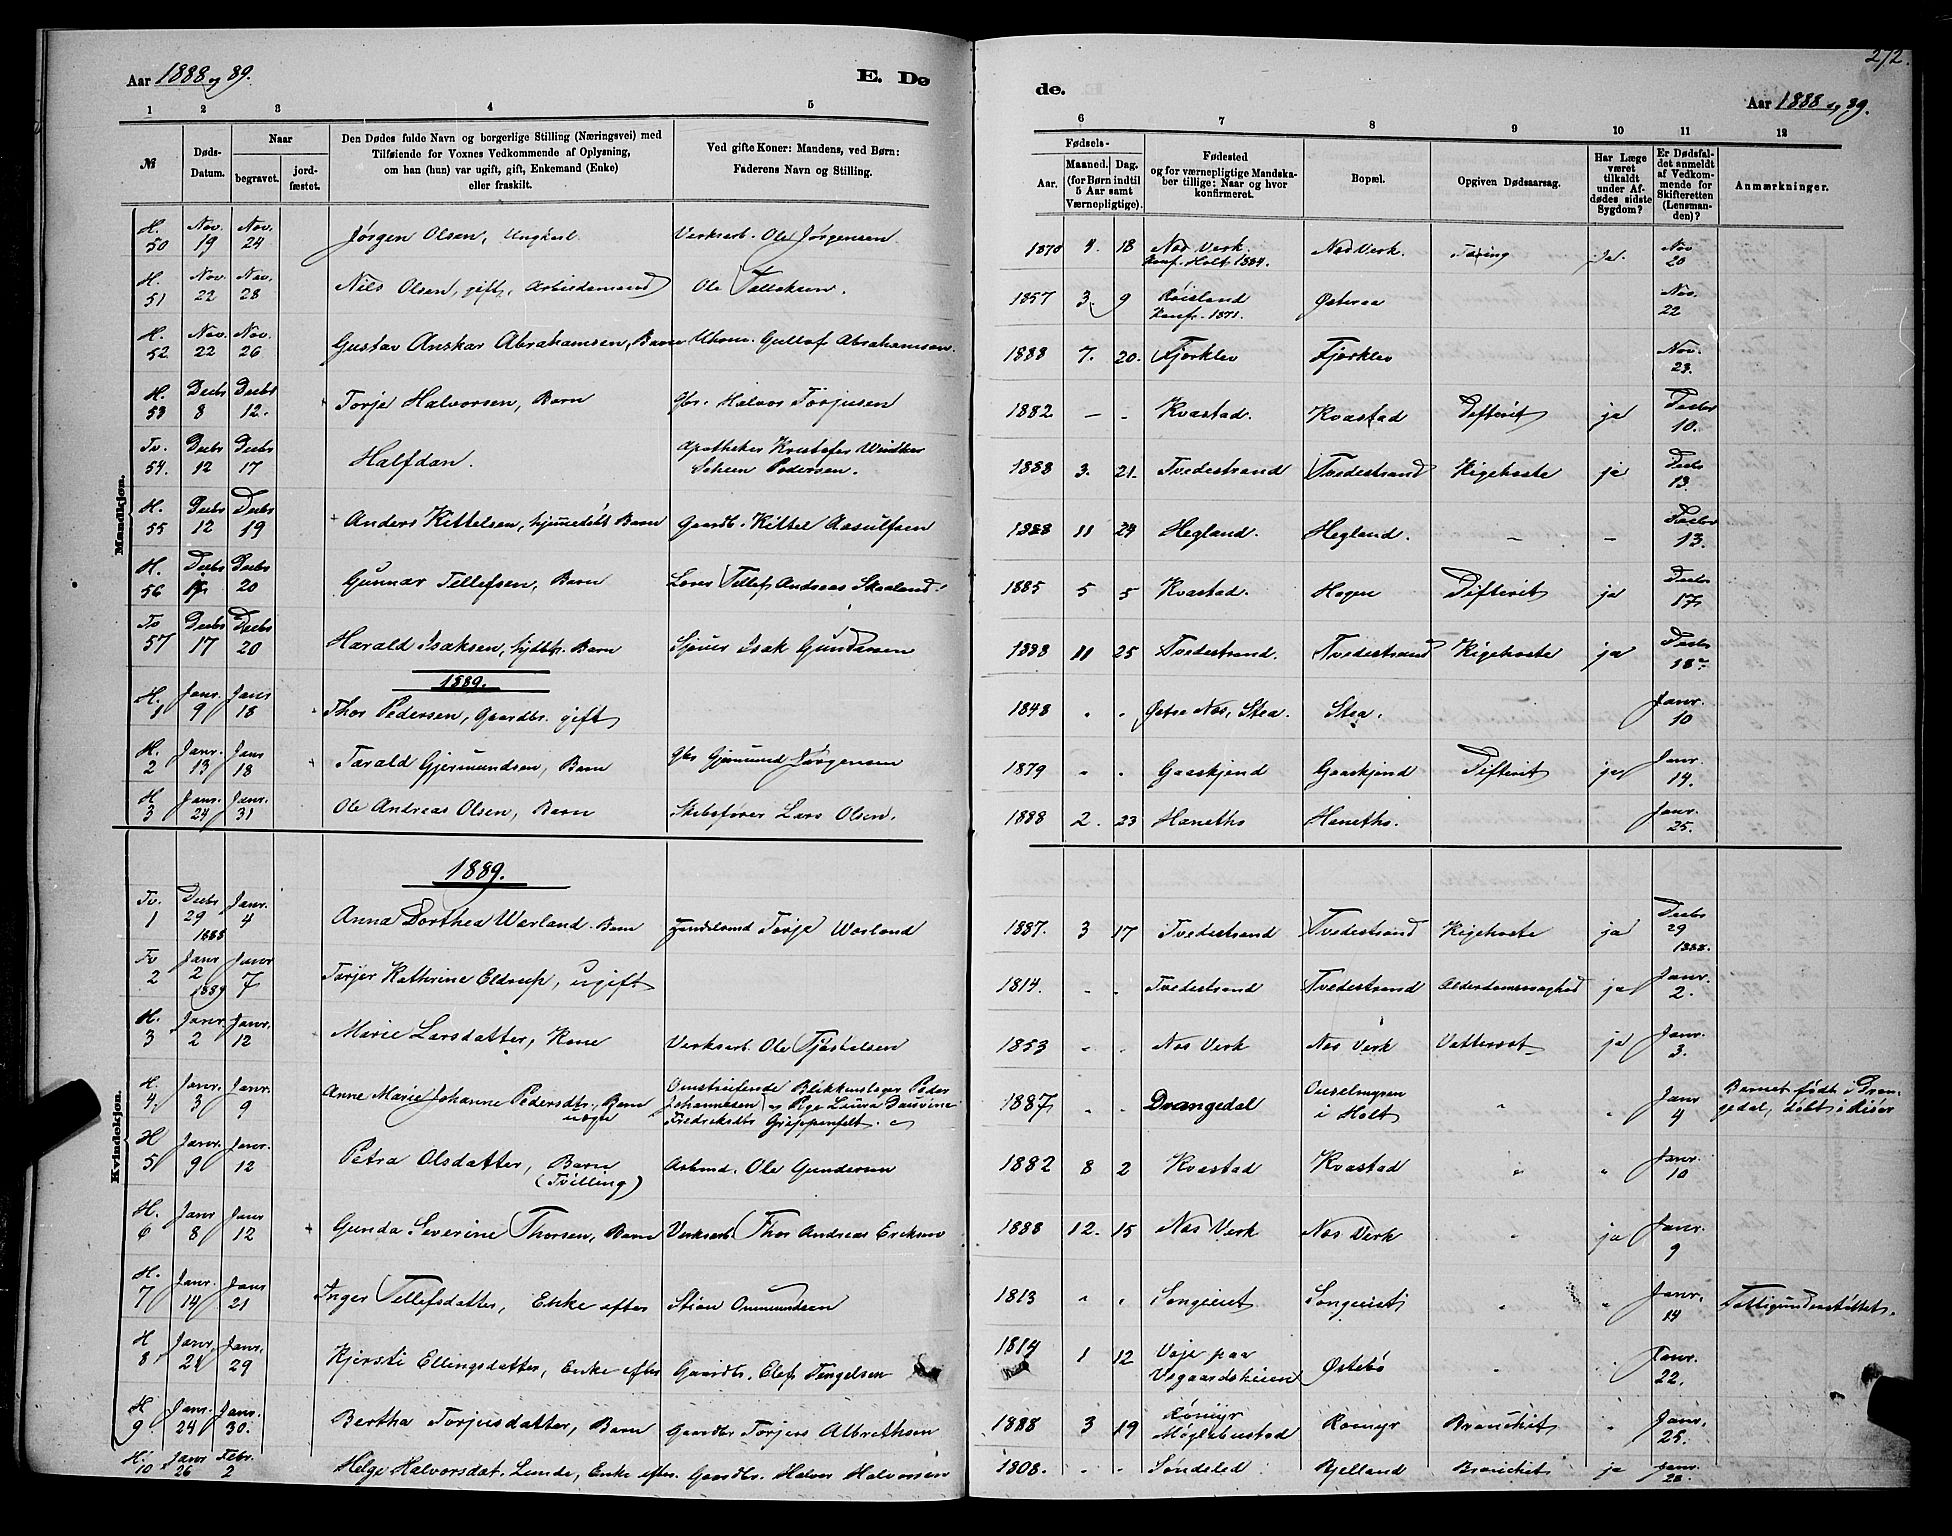 272.
Aar 1888 og 89.
E. Dø
de.
Aar 1888 og 89.
1 2 3 4 5
6 7 8 9 10 11 12
№
Døds-Datum.
Naar
begravet.
jord-fæstet.
Den Dødes fulde Navn og borgerlige Stilling (Næringsvei) med
Tilføiende for Voxnes Vedkommende af Oplysning,
om han (hun) var ugift, gift, Enkemand (Enke)
eller fraskilt.
Ved gifte Koner: Mandens, ved Børn:
Faderens Navn og Stilling.
Fødsels-
Aar.
Maaned. Dag.
(for Børn indtil
5 Aar samt
Værnepligtige).
Fødested
og for værnepligtige Mandska-
ber tillige: Naar og hvor
konfirmeret.
Bopæl.
Opgiven Dødsaarsag.
Har Læge
været
tilkaldt
under Af-
dødes sidste
Sygdom?
Er Dødsfal-
det anmeldt
af Vedkom-
mende for
Skifteretten
(Lensman-
den)?
Anmærkninger.
Mandkjøn.
H. 50 Nov. 19 Nov. 24 Jørgen Olsen, Ungkarl Verksarb. Ole Jørgensen. 1870 4. 18 Nes Verk. Konf. Holt 1884. Nes Verk. Tæring Ja. Nov 20
H. 51 Nov. 22 Nov. 28 Nils Olsen, gift, Arbeidsmand Ole Tellefsen. 1857 3 9 Røisland Konf. 1871. Østeraa Nov. 22
H. 52 Nov. 22 Nov. 26 Gustav Anskar Abrahamsen, Barn Gullof Abrahamsen. 1888 7. 20. Fjorklev Fjorklev Nov. 23.
H. 53 Decbr 8 Decbr 12. Torje Halvorsen, Barn Gbr. Halvor Torjusen 1882 - - Kvastad. Kvastad Difterit ja Decbr 10.
Tv. 54. Decbr 12 Decbr 17 Halfdan. Apotheker Kristofer Winther Scheen Pedersen. 1888 3. 21. Tvedestrand Tvedestrand Kigehoste ja Decbr 13.
H. 55 Decbr 12 Decbr 19 Anders Kittelsen, hjemedøbt Barn Gaardb. Kittel Aasulfsen 1888 11 24 Hegland. Hegland. - - Decbr 13.
H. 56 Decbr Decbr 20 Gunnar Tellefsen, Barn Lærer Tellef Andreas Skaaland 1885 5 5 Kvastad. Hagen Difterit ja Decbr 17
Tv 57 Decbr 17 Decbr 20 Harald Isaksen, hjdbt. Barn Sjøuer Isak Gundersen 1888 11 25 Tvedestrand. Tvedestrand Kigehoste ja Decbr 18.
1889.
H. 1 Janr. 9 Janr 18 Thor Pedersen, Gaardbr. gift 1848 " " Østre Nes, Stea. Stea. Janr. 10
H. 2 Janr. 13 Janr 18 Tarald Gjermundsen, Barn Gbr Gjermund Jørgensen 1879 " " Gaaskjend Gaaskjend Difterit ja Janr. 14.
H 3 Janr. 24 Janr. 31 Ole Andreas Olsen, Barn Skibsfører Lars Olsen. 1888 2. 23 Haneths Haneths. Janr. 25.
Kvindekjøn.
1889.
Tv. 1 Decbr 29 1888 Janr. 4 Anna Dorthea Warland. Barn Handelsmd Torje Warland 1887. 3 17 Tvedestrand Tvedestrand Kigehoste ja Decbr 29 1888.
Tv 2 Janr 2 1889 Janr 7 Torjer Kathrine Eldrup, ugift 1814. " " Tvedestrand Tvedestrand Alderdomssvaghed ja Janr. 2.
H. 3 Janr. 2 Janr. 12 Marie Larsdatter, Kone Verksarb. Ole Tjøstelsen 1853 " " Nes Verk Nes Verk Vattersot ja Janr. 3.
H. 4. Janr. 3 Janr. 9 Anne Marie Johanne Pedersdtr. Barn uægte Omstreifende Blikkenslager Peder Johannesen og Pige Laura Fredriksdtr Grippenfelt. 1887 " " Drangedal i Holt " " Janr 4 Barnet født i Drangedal, døbt i Risør
H 5 Janr. 9 Janr. 12 Petra Olsdatter, Barn (Tvilling) Arbmd. Ole Gundersen 1882 8 2 Kvastad Kvastad " " Janr. 10
H. 6 Janr 8 Janr 12 Gunda Severine Thorsen, Barn Verksarb. Thor Andreas Eriksen 1888 12. 15 Nes Verk Nes Verk " ja Janr. 9
H. 7 Janr. 14 Janr 21 Inger Tellefsdatter, Enke efter Stian Ommundsen 1813 " " Songeieit Songeieit " " Janr. 14 Fattigunderstøttet.
H 8. Janr. 21 Janr. 29 Kjersti Ellingsdatter, Enke efter Gaardbr. Elef Tengelsen 1814 1 12 Voje paa Vegaardsheien Østebø " " Janr. 22.
H 9. Janr. 24 Janr. 30. Bertha Torjusdatter, Barn Gaardbr Torjers Albrethsen 1888 3 19 Rømyr Møglebustad Rømyr Bronchit " Janr. 25.
H. 10 Janr 26 Febr. 2 Helge Halvorsdat. Lunde, Enke efter Gaardbr. Halvor Halvorsen 1808. " " Søndeled Bjelland Bronchit ja Janr. 28